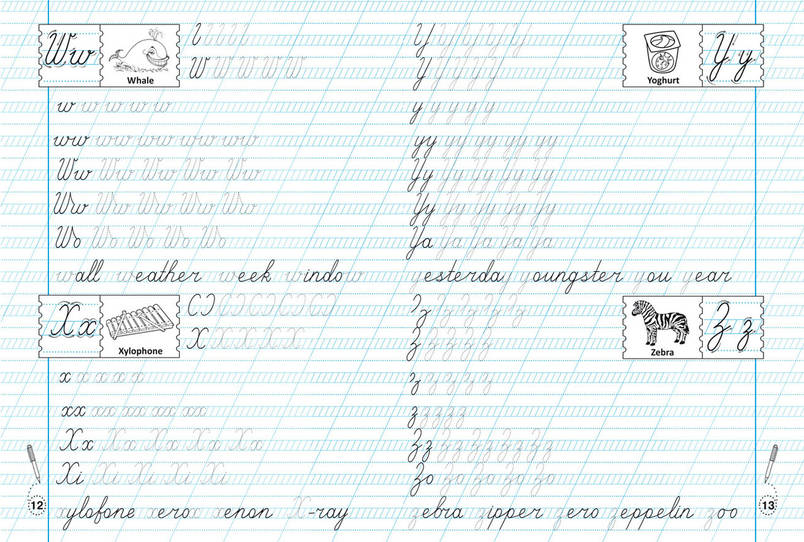 Ww
Whale
W W W W W W
w w w w w w
ww ww ww ww ww ww
Ww Ww Ww Ww Ww
Wo Wo Wo Wo Wo
wall weather week window
Xx
Xylophone
X X X X X X
x x x x x x
xx xx xx xx xx
Xx Xx Xx Xx Xx
Xi Xi Xi Xi Xi
xylofone xerox xenon X-ray
12
Yoghurt
Yy
Y Y Y Y Y
y y y y y
yy yy yy yy yy
Yy Yy Yy Yy Yy
Yy Yy Yy Yy Yy
Ya Ya Ya Ya Ya
yesterday youngster you year
Zebra
Zz
Z Z Z Z Z
z z z z z
z z z z z
Zz Zz Zz Zz Zz
Zo Zo Zo Zo Zo
zebra zipper zero zeppelin zoo
13